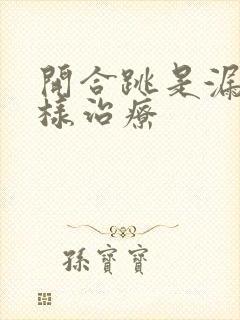 開合跳是漏
樣治療
孫寶寶